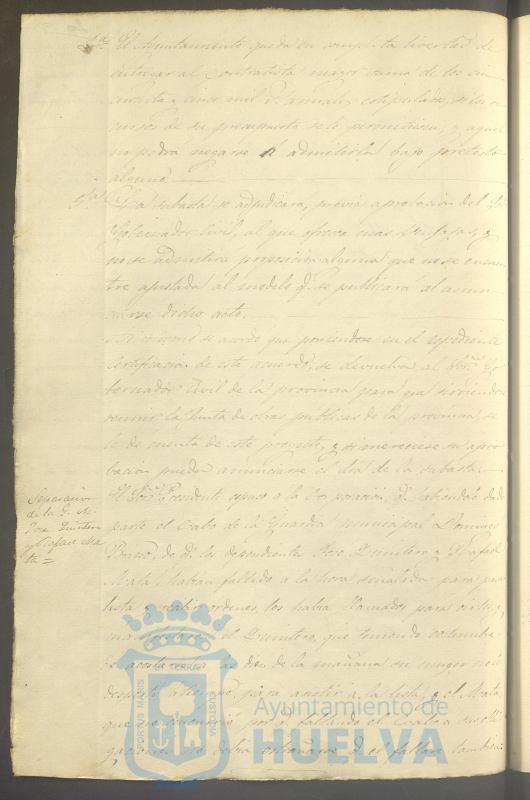 8ª El Ayuntamiento queda en completa libertad de
entregar al Contratista mayor suma de los cin
cuenta y cinco mil r.^s anuales estipulados, si los re
cursos de su presupuesto se lo permitieren, y aquel
no podrá negarse á admitirla bajo pretesto
alguno.
9ª La subasta se adjudicará, previa aprobacion del Sr.
Gobernador Civil, al que ofrezca mas ventajas, y
no se admitirá proposicion alguna que no se encuen
tre ajustada al modelo q.^e se publicará al anun
ciarse dicho acto.
se acordó que poniendose en el expediente
certificacion de este acuerdo, se devuelva al Sor. Go
bernador Civil de la provincia para que sirviendose
reunir la Junta de obras publicas de la provincia, se
le dé cuenta de este proyecto, y si mereciese su apro
bacion pueda anunciarse el dia de la subasta.
Separacion
de la G. M.
Jose Quintero
y Rafael Ma
ta =
El Sor. Presidente espuso a la Corporacion q.^e habiendole dado
parte el Cabo de la Guardia municipal Domingo
de q.^e los dependientes Jose Quintero y Rafael
Mata, habian faltado a la hora señalada para pasar
lista y recibir ordenes, los habia llamados para
el Quintero, que teniendo costumbre
de la mañana su muger no le
despertó para asistir a la lista, y el Mata,
que faltando el Cabo a sus obli
gaciones no debia estrañarse q.^e el faltase tambien
PORTUS MARIS
ET TERRAE
CUSTODIA
Ayuntamiento de
HUELVA